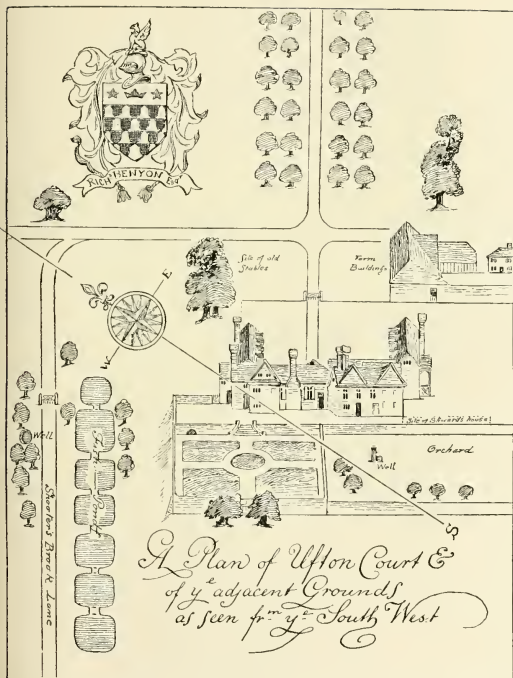 RICHD BENYON ESQ
Site of old
Stables
Farm
Buildings
E
W
Site of Stewards house
Orchard
Well
Well
Fish Ponds
Shooter's Brook Lane
S
A Plan of Ufton Court &
of ye adjacent Grounds
as seen frm ye South West